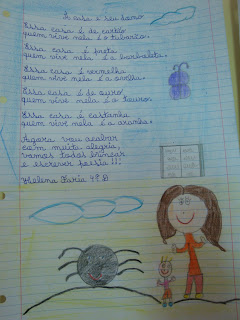 A casa e seu dono
Essa casa é de cartão
quem vive nela é o tubarão.
Essa casa é preta
quem vive nela é a borboleta.
Essa casa é vermelha
quem vive nela é a ovelha.
Essa casa é de ouro
quem vive nela é o touro.
Essa casa é castanha
quem vive nela é a aranha.
Agora vou acabar
com muita alegria,
vamos todos brincar
e escrever poesia!!!
Helena Faria 4º D